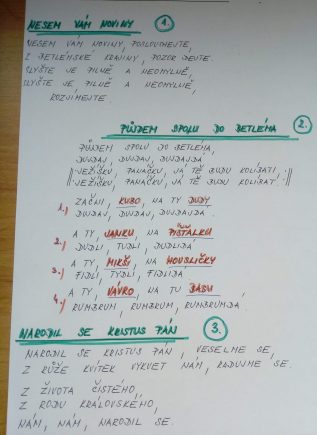 NESEM VÁM NOVINY 1.
NESEM VÁM NOVINY, POSLOUCHEJTE,
Z BETLÉMSKÉ KRAJINY, POZOR DEJTE.
SLYŠTE JE PILNĚ A NEOMYLNĚ,
SLYŠTE JE PILNĚ A NEOMYLNĚ,
ROZJÍMEJTE
PŮJDEM SPOLU DO BETLÉMA 2.
PŮJDEM SPOLU DO BETLÉMA,
DUJDAJ, DUJDAJ, DUJDAJDÁ
JEŽÍŠKU, PANÁČKU, JÁ TĚ BUDU KOLÍBATI,
JEŽÍŠKU, PANÁČKU, JÁ TĚ BUDU KOLÍBAT.
1.) ZAČNI, KUBO, NA TY DUDY
DUDAJ, DUDAJ, DUDAJDA
2.) A TY, JANKU, NA PÍŠŤALKU
DUDLI, TUDLI, DUDLIDÁ
3.) A TY, MIKŠI, NA HOUSLIČKY
FIDLI, TYDLI, FIDLIDÁ
4.) A TY, VÁVRO, NA TU BASU,
RUMRUM, RUMRUM, RUMRUMDA.
NARODIL SE KRISTUS PÁN 3.
NARODIL SE KRISTUS PÁN, VESELME SE,
Z RŮŽE KVÍTEK VYKVET NÁM, RADUJME SE.
Z ŽIVOTA ČISTÉHO,
Z RODU KRÁLOVSKÉHO,
NÁM, NÁM, NARODIL SE.